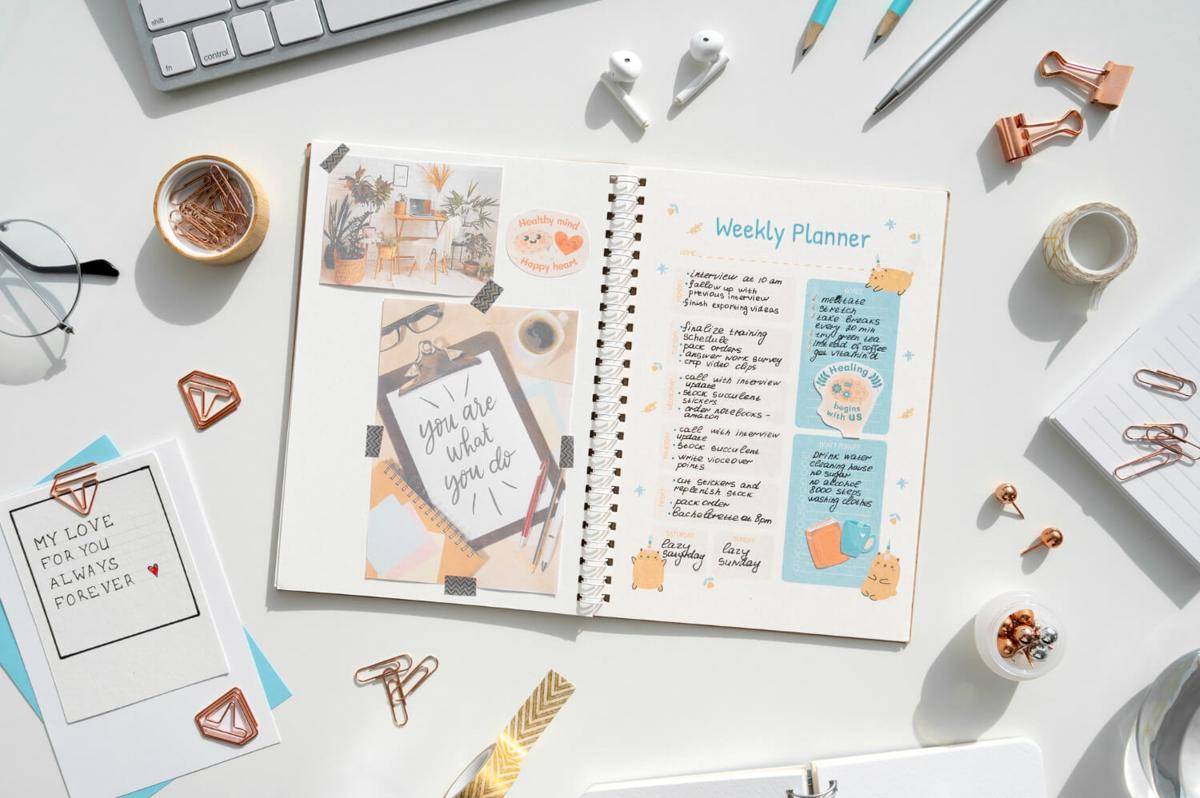 shift
fn
control
Healthy mind
Happy heart
you are
what
you do
MY LOVE
FOR YOU
ALWAYS
FOREVER
Weekly Planner
• interview at 10 am
• follow up with
previous interview
finish exporting videos
• finalize training
schedule
• pack orders
• answer work survey
• crop video clips
• call with interview
update
• stock succulent
stickers
• order notebooks -
amazon
• call with interview
update
• stock succulent
• write voiceover
points
• cut stickers and
replenish stock
• pack order
• bachelorette at 8pm
SATURDAY
lazy
saturday
SUNDAY
lazy
sunday
meditate
stretch
take breaks
every 20 min
try green tea
instead of coffee
get vitamin d
Healing
begins
with us
DON'T FORGET
Drink water
cleaning house
no sugar
no alcohol
8000 steps
washing clothes